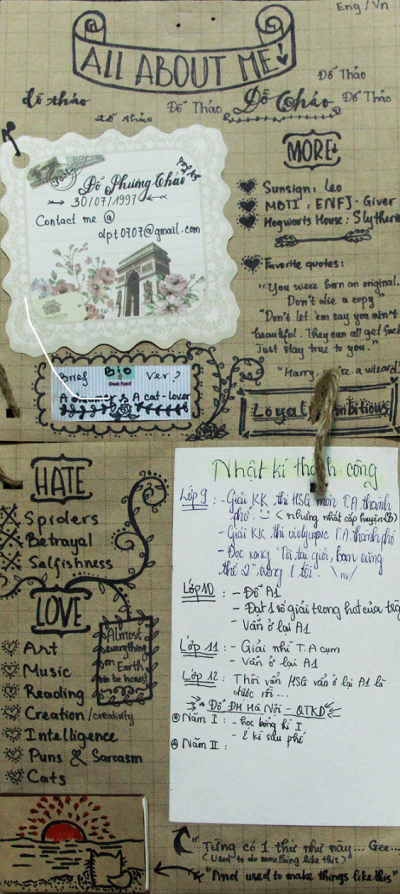 Eng / Vn
ALL ABOUT ME!
đỗ thảo
Đỗ Thảo
Đỗ Thảo
Đỗ Thảo
Đỗ Thảo
Đỗ Thảo
MORE
Sunsign: Leo
MBTI: ENFJ-Giver
Hogwarts House: Slytherin
Post
Đỗ Phương Thảo
30/07/1997
Contact me @
dpt0707@gmail.com
Favorite quotes:
"You were born an original.
Don't die a copy"
"Don't let 'em say you ain't
beautiful. They can all get
Just stay true to you."
"Harry, a wizard"
Brief Bio Ver?
A is A cat-lover
Loyal Ambitious
HATE
Spiders
Betrayal
Selfishness
LOVE
Art
Music
Reading
Creation/creativity
Intelligence
Puns & Sarcasm
Cats
Almost
everything
on Earth
to be honest
Nhật kí thành công
Lớp 9: - Giải KK thi HSG môn T.A thành
phố. :) (nhưng nhất cấp huyện)
- Giải KK thi violympic T.A thành phố
- Đọc xong "Tôi tài giỏi, bạn cũng
thế 2" trong 1 tối. \m/
Lớp 10: - Đỗ A1
- Đạt 1 số giải trong
- Vẫn ở lại A1
Lớp 11: - Giải nhì T.A cụm
- Vẫn ở lại A1
Lớp 12: Thôi vẫn HSG vẫn ở lại A1 là
được rồi...
Đỗ ĐH Hà Nội - QTKD
Năm I: - học bổng kì I
- 2 kì sau
Năm II:
"Từng có 1 thứ như này... Gee...
(Used to do something like this)
"And used to make things like this"